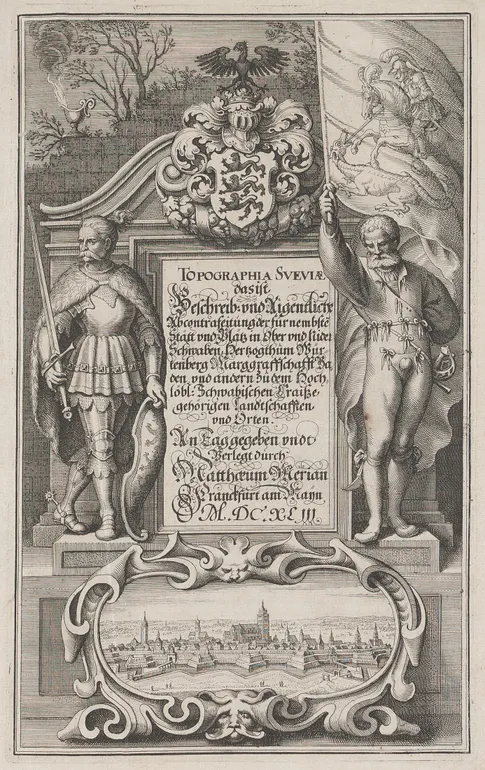 TOPOGRAPHIA SVEVIÆ
das ist
Beschreib: vnd Aigentliche
Abcontrafeitung der fürnembstē
Stätt vnd Plätz in Ober vnd Nider
Schwaben, Hertzogthum Würtenberg
Marggraffschafft Ba
den, vnd andern zu dem Hoch
löbl: Schwabischen Craiße
gehörigen Landtschafften
vnd Orten.
An Tag gegeben vndt
Verlegt durch
Matthæum Merian
Franckfurt am Mayn
M.DC.XLIII